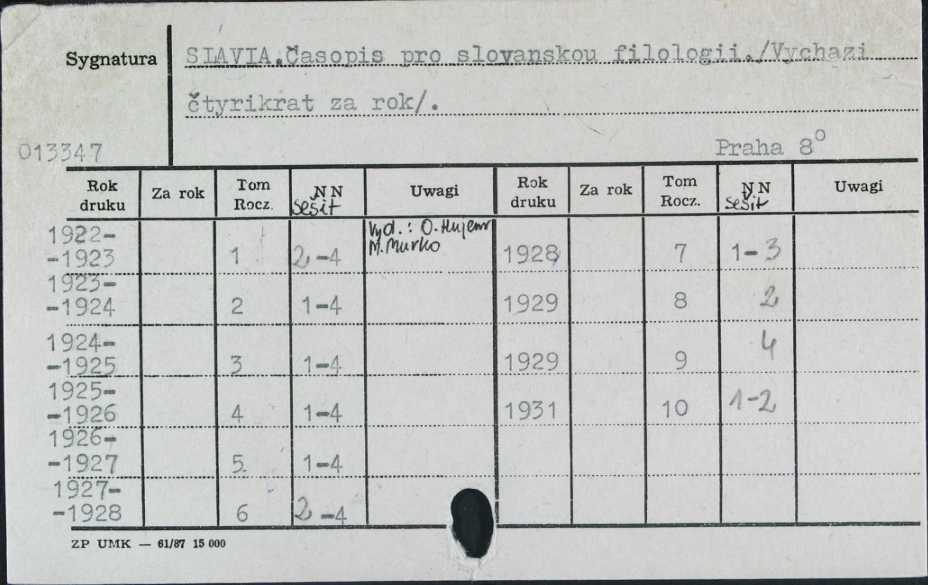 Sygnatura SLAVIA.Časopis pro slovanskou filologii./Vychazi
čtyrikrat za rok/.
013347 Praha 8°
Rok druku Za rok Tom Rocz. NN sešit Uwagi Rok druku Za rok Tom Rocz. NN sešit Uwagi
1922- Vyd.: O. Hujer
-1923 1 2-4 M. Murko 1928 7 1-3
1923-
-1924 2 1-4 1929 8 2
1924-
-1925 3 1-4 1929 9 4
1925-
-1926 4 1-4 1931 10 1-2
1926-
-1927 5 1-4
1927-
-1928 6 2-4
ZP UMK — 61/87 15 000